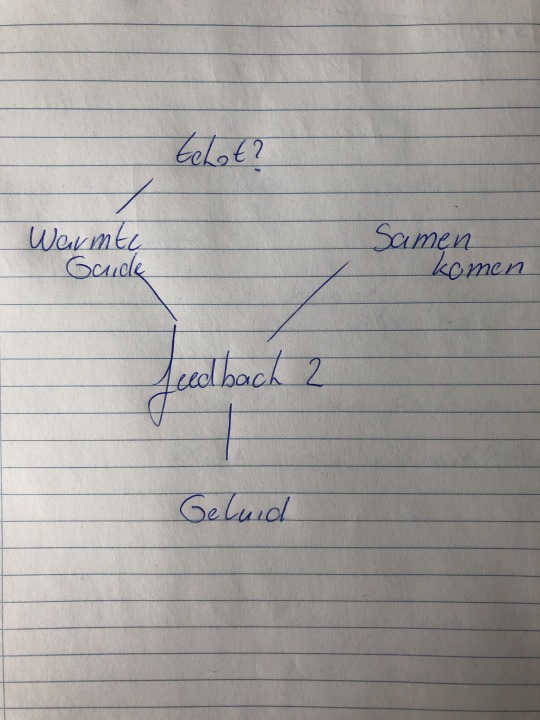 Echot?
Warmte
Guide
Samen
komen
feedback 2
Geluid